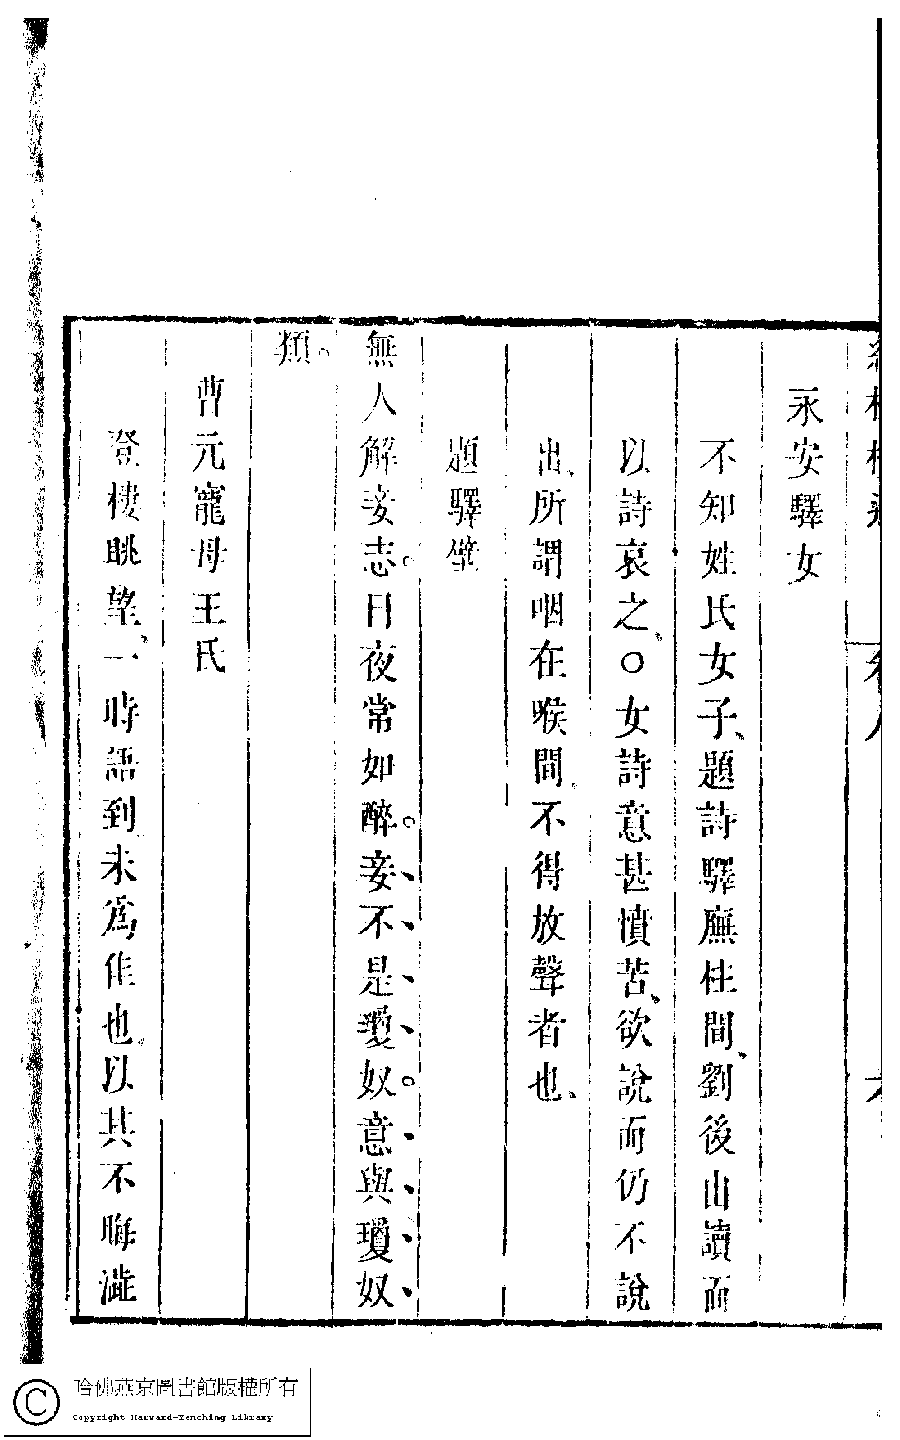 永安驛女
不知姓氏女子、題詩驛廡柱間、劉後山讀而
以詩哀之、○女詩意甚憤苦、欲說而仍不說
出、所謂咽在喉間、不得放聲者也、
題驛壁
無人解妾志。日夜常如醉。妾不是瓊奴。意與瓊奴
類。
曹元寵母王氏
登樓眺望、一時語到、未爲佳也。以其不晦澁
哈佛燕京圖書館版權所有
Copyright Harvard-Yenching Library